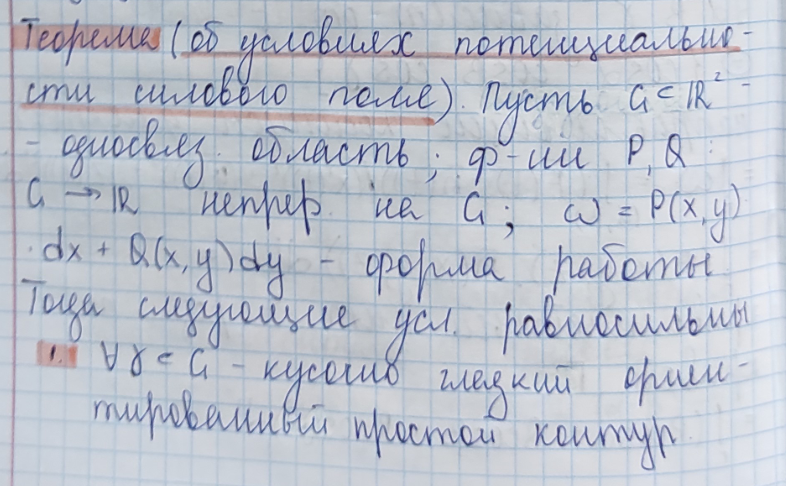 Теорема (об условиях потенциально-
сти силового поля). Пусть G ⊂ ℝ² -
- односвяз. область; ф-ии P, Q :
G → ℝ непрер на G; ω = P(x,y)·
·dx + Q(x,y)dy - форма работы
Тогда следующие усл. равносильны
1. ∀ γ ⊂ G - кусочно гладкий ориен-
тированный простой контур